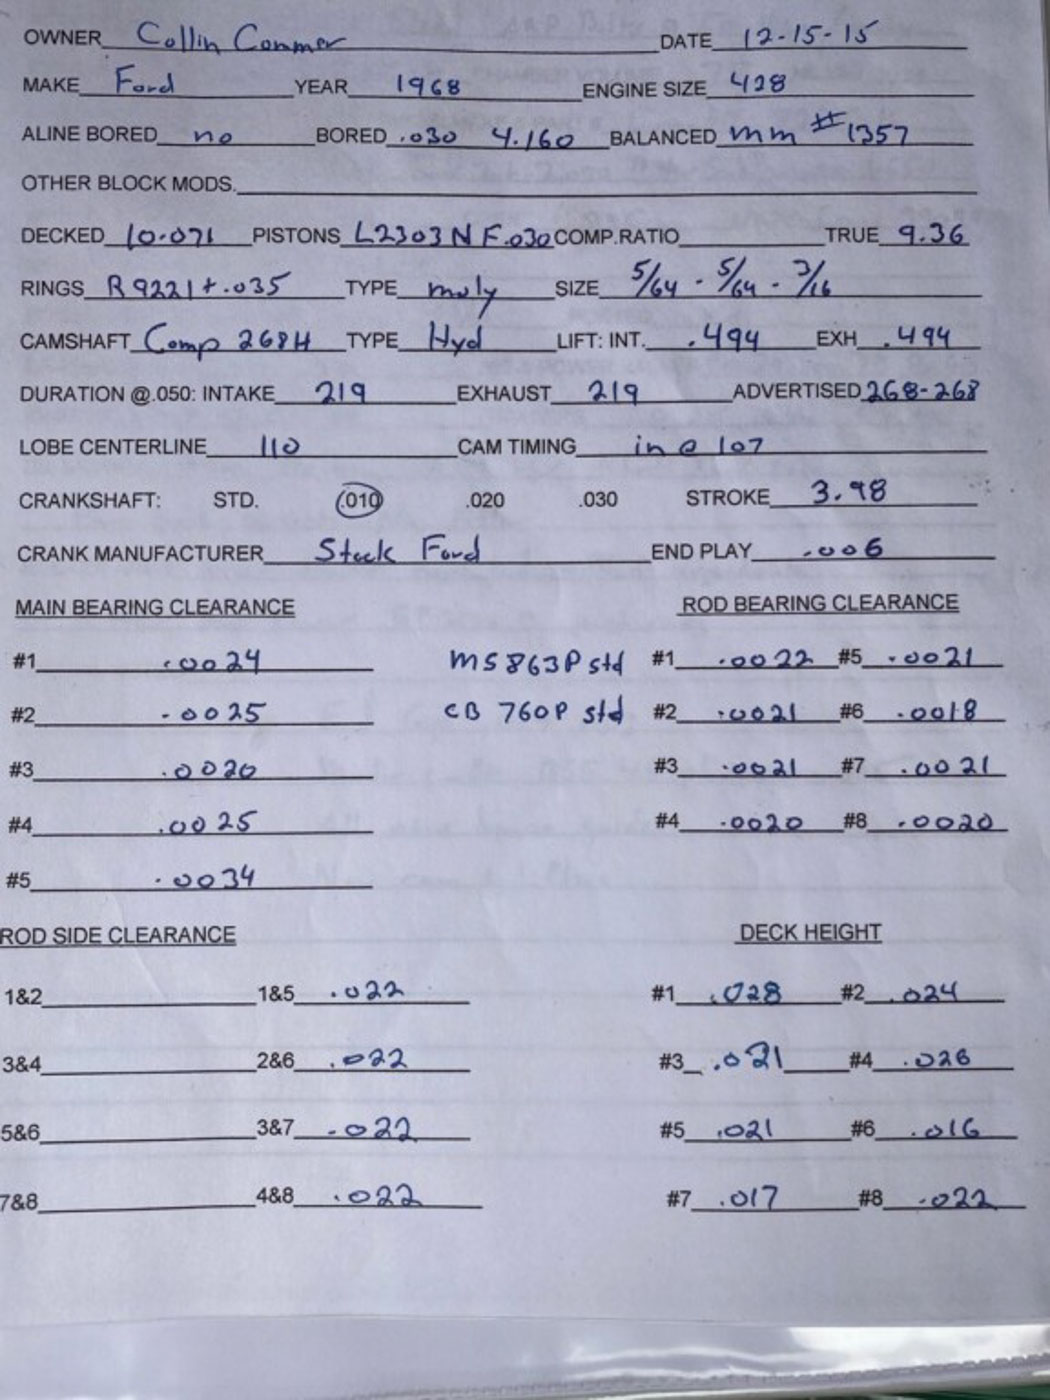 OWNER Collin Commer DATE 12-15-15
MAKE Ford YEAR 1968 ENGINE SIZE 428
ALINE BORED no BORED .030 4.160 BALANCED mm #1357
OTHER BLOCK MODS.
DECKED 10.071 PISTONS L2303NF.030 COMP.RATIO TRUE 9.36
RINGS R9221+.035 TYPE moly SIZE 5/64 - 5/64 - 3/16
CAMSHAFT Comp 268H TYPE Hyd LIFT: INT. .494 EXH .494
DURATION @.050: INTAKE 219 EXHAUST 219 ADVERTISED 268-268
LOBE CENTERLINE 110 CAM TIMING in @ 107
CRANKSHAFT: STD. .010 .020 .030 STROKE 3.98
CRANK MANUFACTURER Stock Ford END PLAY .006
MAIN BEARING CLEARANCE ROD BEARING CLEARANCE
#1 .0024 MS863P std #1 .0022 #5 .0021
#2 .0025 CB 760P std #2 .0021 #6 .0018
#3 .0020 #3 .0021 #7 .0021
#4 .0025 #4 .0020 #8 .0020
#5 .0034
ROD SIDE CLEARANCE DECK HEIGHT
1&2 1&5 .022 #1 .028 #2 .024
3&4 2&6 .022 #3 .021 #4 .026
5&6 3&7 .022 #5 .021 #6 .016
7&8 4&8 .022 #7 .017 #8 .022